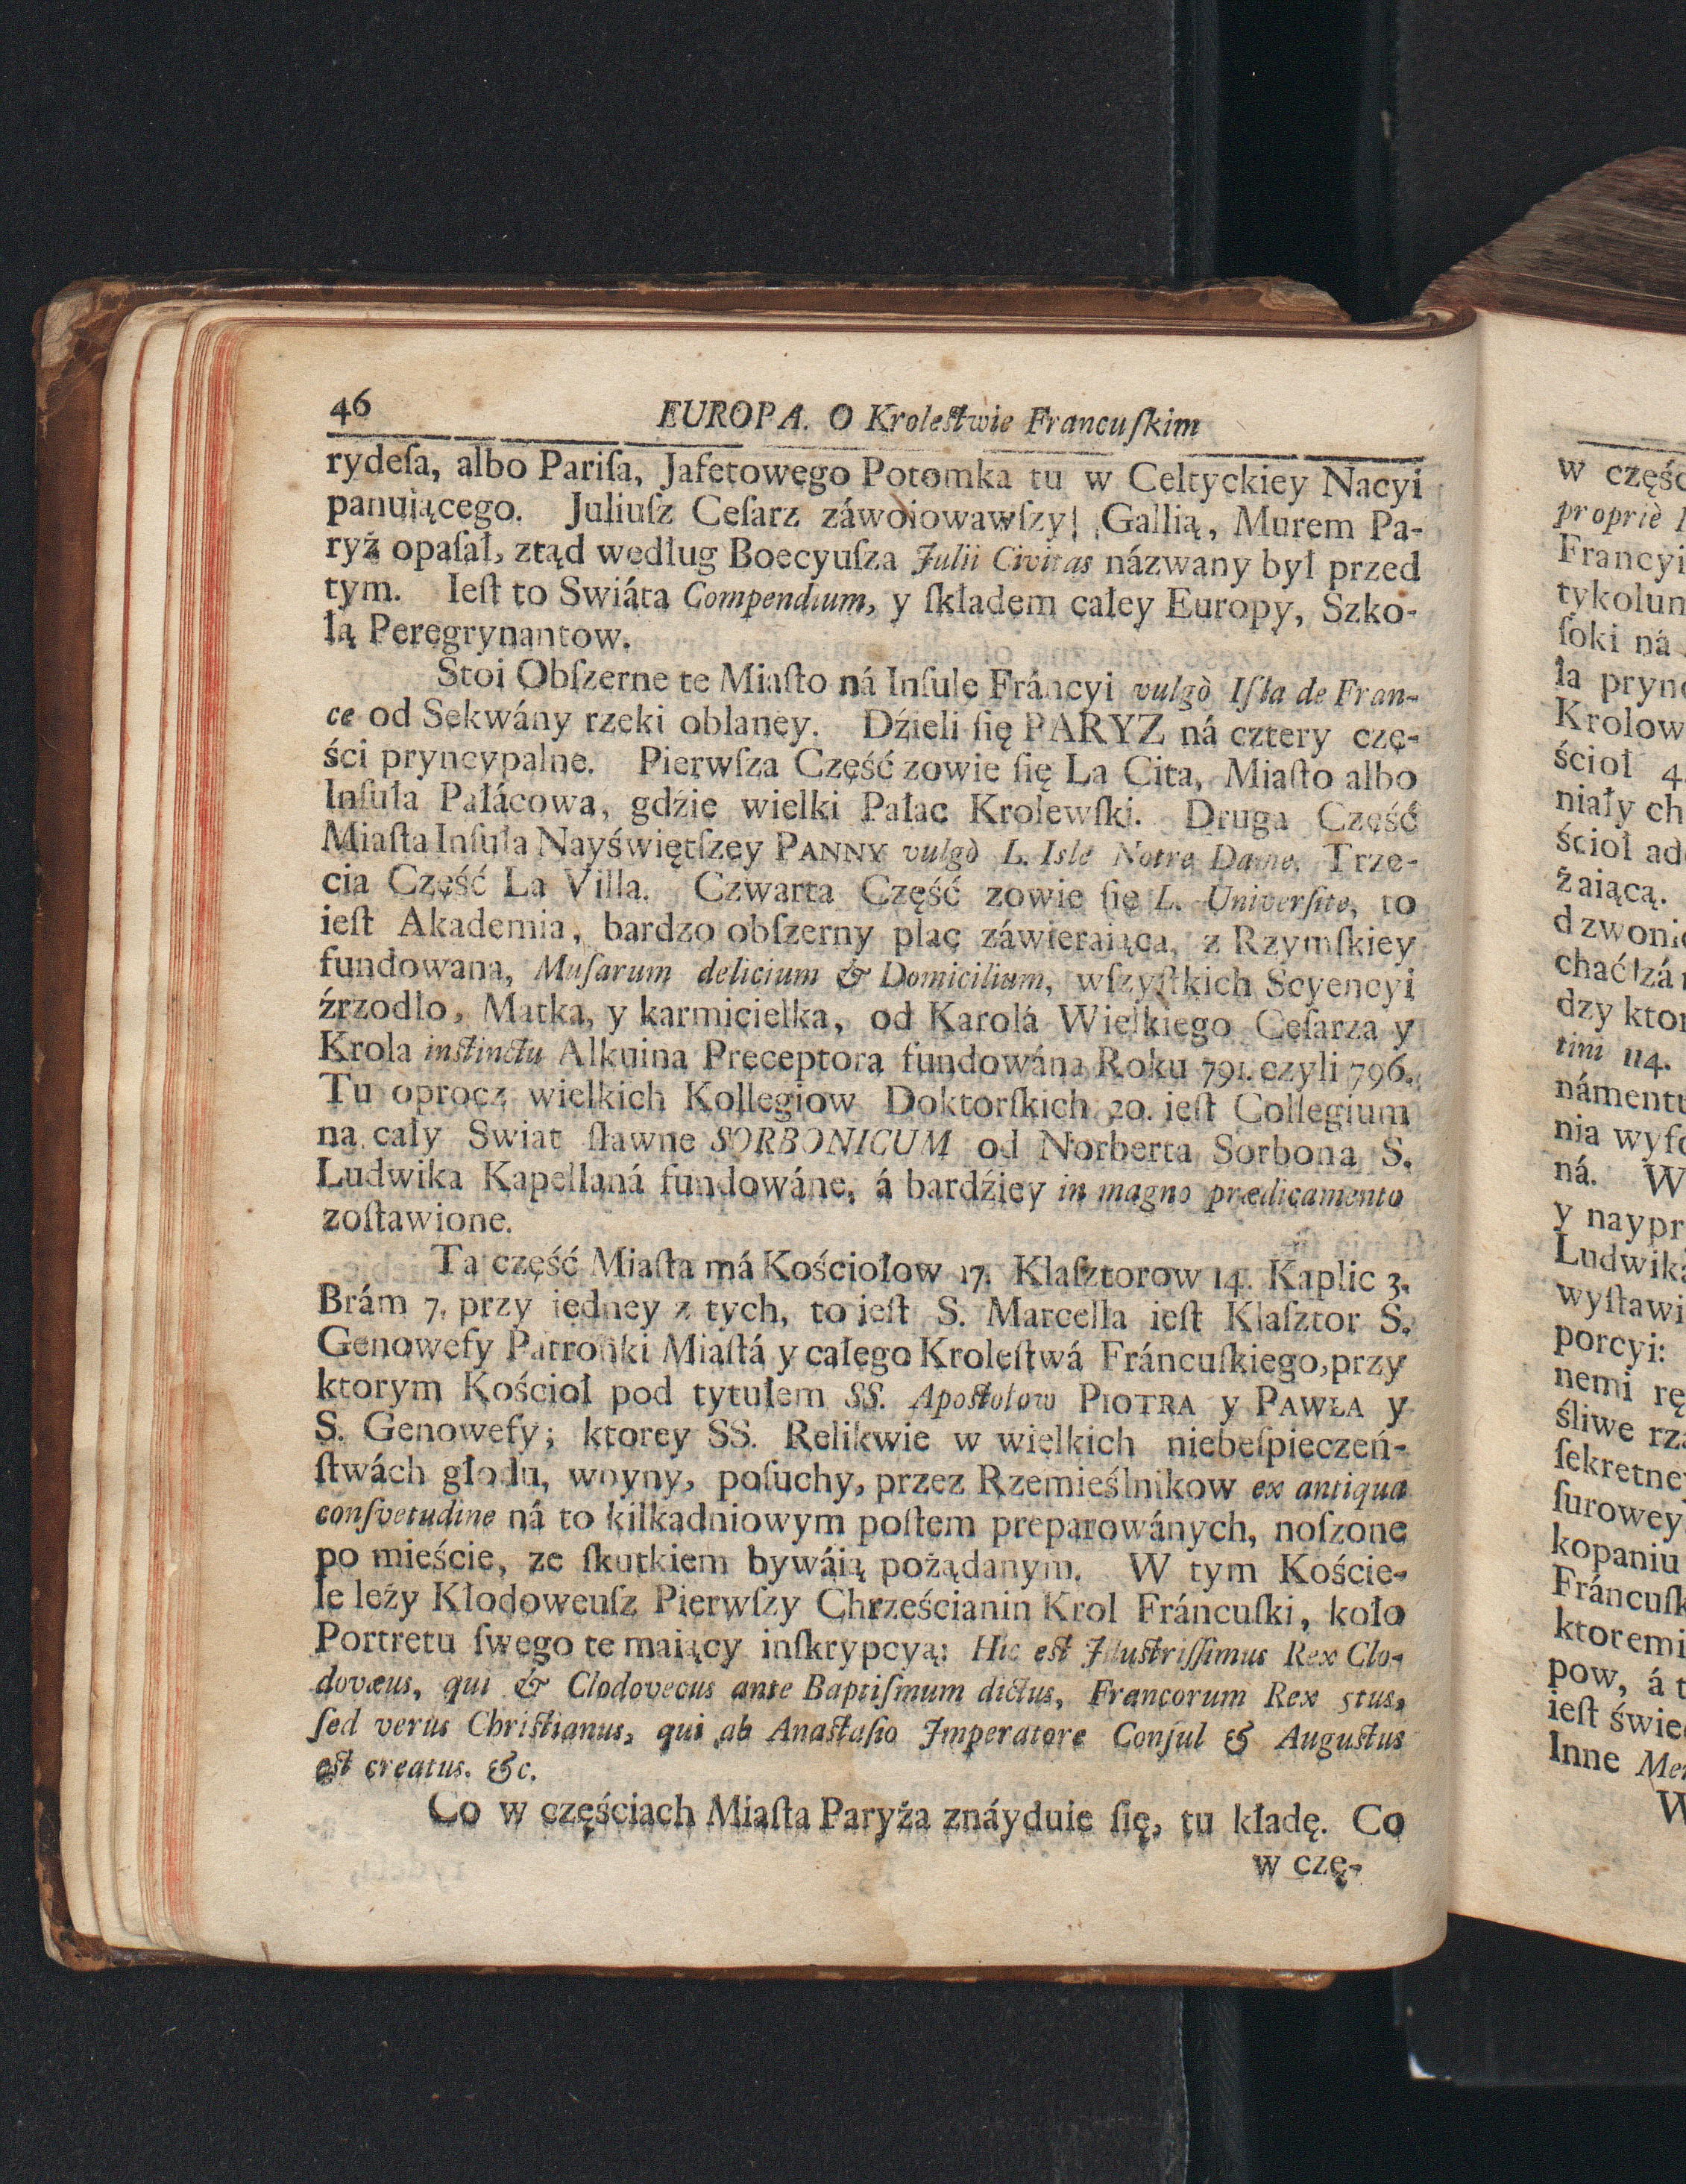 46 EUROPA. O Kroleſtwie Francuſkim
rydeſa, albo Pariſa, Jafetowego Potomka tu w Celtyckiey Nacyi
panuiącego. Juliuſz Ceſarz záwoiowawſzy Gallią, Murem Pa-
ryż opaſał, ztąd według Boecyuſza Julii Civitas názwany był przed
tym. Ieſt to Swiáta Compendium, y ſkładem całey Europy, Szko-
łą Peregrynantow.
Stoi Obſzerne te Miaſto ná Inſule Fráncyi vulgò Iſla de Fran-
ce od Sekwány rzeki oblaney. Dźieli ſię PARYZ ná cztery czę-
ści pryncypalne. Pierwſza Część zowie ſię La Cita, Miaſto albo
Inſuła Pałácowa, gdźie wielki Pałac Krolewſki. Druga Część
Miaſta Inſuła Nayświętſzey PANNY vulgò L. Isle Notre Dame. Trze-
cia Część La Villa. Czwarta Część zowie ſię L. Univerſite, to
ieſt Akademia, bardzo obſzerny plac záwieraiąca, z Rzymſkiey
fundowana, Muſarum delicium & Domicilium, wſzyſtkich Scyencyi
źrzodło, Matka, y karmicielka, od Karolá Wielkiego Ceſarza y
Krola instinctu Alkuina Preceptora fundowána Roku 791. czyli 796.
Tu oprocz wielkich Kollegiow Doktorſkich 20. ieſt Collegium
na cały Swiat ſławne SORBONICUM od Norberta Sorbona S.
Ludwika Kapellaná fundowáne, á bardźiey in magno prædicamento
zoſtawione.
Ta część Miaſta má Kościołow 17. Klaſztorow 14. Kaplic 3.
Brám 7. przy iedney z tych, to ieſt S. Marcella ieſt Klaſztor S.
Genowefy Patronki Miaſtá y całego Kroleſtwá Fráncuſkiego, przy
ktorym Kościoł pod tytułem SS. Apostołow PIOTRA y PAWŁA y
S. Genowefy; ktorey SS. Relikwie w wielkich niebeſpieczeń-
ſtwách głodu, woyny, poſuchy, przez Rzemieślnikow ex antiqua
conſvetudine ná to kilkadniowym poſtem preparowánych, noſzone
po mieście, ze ſkutkiem bywáią pożądanym. W tym Koście-
le leży Kłodoweuſz Pierwſzy Chrześcianin Krol Fráncuſki, koło
Portretu ſwego te maiący inſkrypcyą: Hic est Illustriſſimus Rex Clo-
dovæus, qui & Clodovecus ante Baptiſmum dictus, Francorum Rex 5tus,
ſed verus Christianus, qui ab Anastaſio Imperatore Conſul & Augustus
est creatus. &c.
Co w częściach Miaſta Paryża znáyduie ſię, tu kładę. Co
w czę-
w częśc
propriè
Francyi
tykolun
ſoki ná
ła prync
Krolow
ścioł 4.
niały ch
ścioł ad
żaiącą.
dzwoni
chać
dzy ktor
tini 114.
námentu
nia wyſo
ná. W
y naypr
Ludwiká
wyſtawi
porcyi:
nemi rę
śliwe rz
ſekretne
ſurowey
kopaniu
Fráncuſk
ktoremi
pow, á t
ieſt świe
Inne Me
W